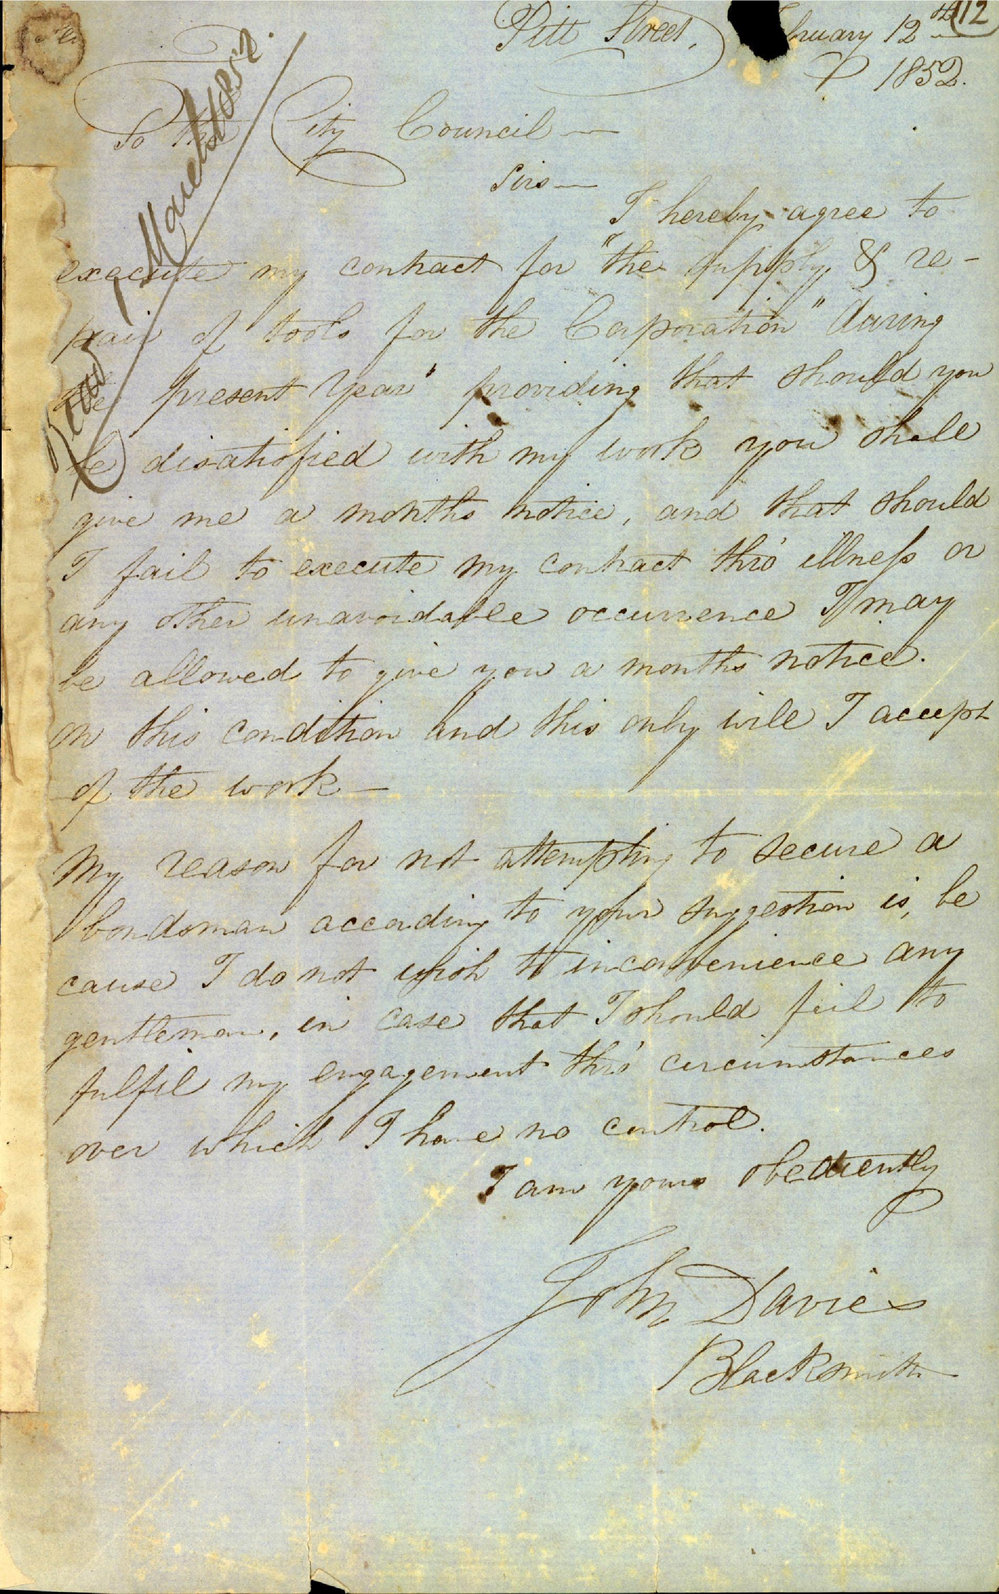 112
Pitt Street, February 12th
1852.
Read 1 March 1852.
To the City Council —
Sirs —
I hereby agree to
execute my contract for "the supply & re-
pair of tools for the Corporation" during
the present Year" providing that should you
be disatisfied with my work you shall
give me a months notice, and that should
I fail to execute my contract thro' illness or
any other unavoidable occurrence I may
be allowed to give you a months notice.
On this condition and this only will I accept
of the work —
My reason for not attempting to secure a
bondsman according to your suggestion is, be
cause I do not wish to inconvenience any
gentleman, in case that I should fail to
fulfil my engagement thro' circumstances
over which I have no control.
I am yours obediently
John Davies
Blacksmith